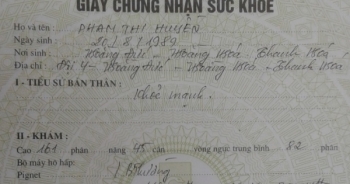 GIẤY CHỨNG NHẬN SỨC KHOẺ
Họ và tên : PHẠM THỊ HUYỀN
Ngày sinh : 20/8/1989
Nơi sinh : Hoằng Đức - Hoằng Hoá - Thanh Hoá
Địa chỉ : Đội 4 - Hoằng Đức - Hoằng Hoá - Thanh Hoá
I - TIỂU SỬ BẢN THÂN :
Khoẻ mạnh.
II - KHÁM :
Cao 161 phân nặng 45 cân vòng ngực trung bình 82 phân
Bộ máy hô hấp: Bình thường
Pignet